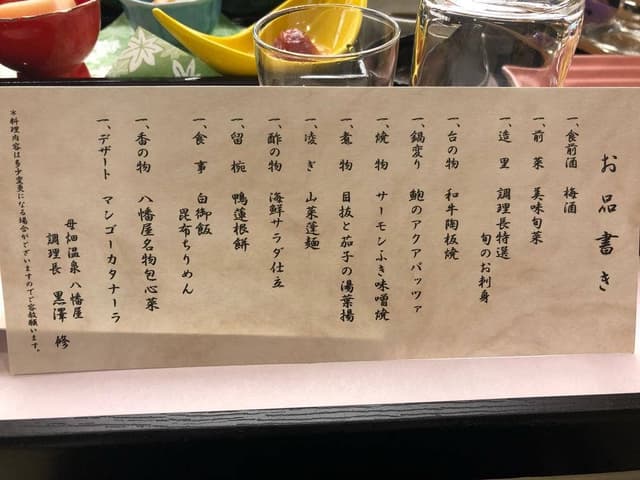 お品書き
一、食前酒 梅酒
一、前菜 美味旬菜
一、造里 調理長特選
旬のお刺身
一、台の物 和牛陶板焼
一、鍋変り 鮑のアクアパッツァ
一、焼物 サーモンふき味噌焼
一、煮物 目抜と茄子の湯葉揚
一、凌ぎ 山菜蓬麺
一、酢の物 海鮮サラダ仕立
一、留椀 鴨蓮根餅
一、食事 白御飯
昆布ちりめん
一、香の物 八幡屋名物包心菜
一、デザート マンゴーカタナーラ
母畑温泉八幡屋
調理長 黒澤 修
*料理内容は多少変更になる場合がございますのでご容赦願います。